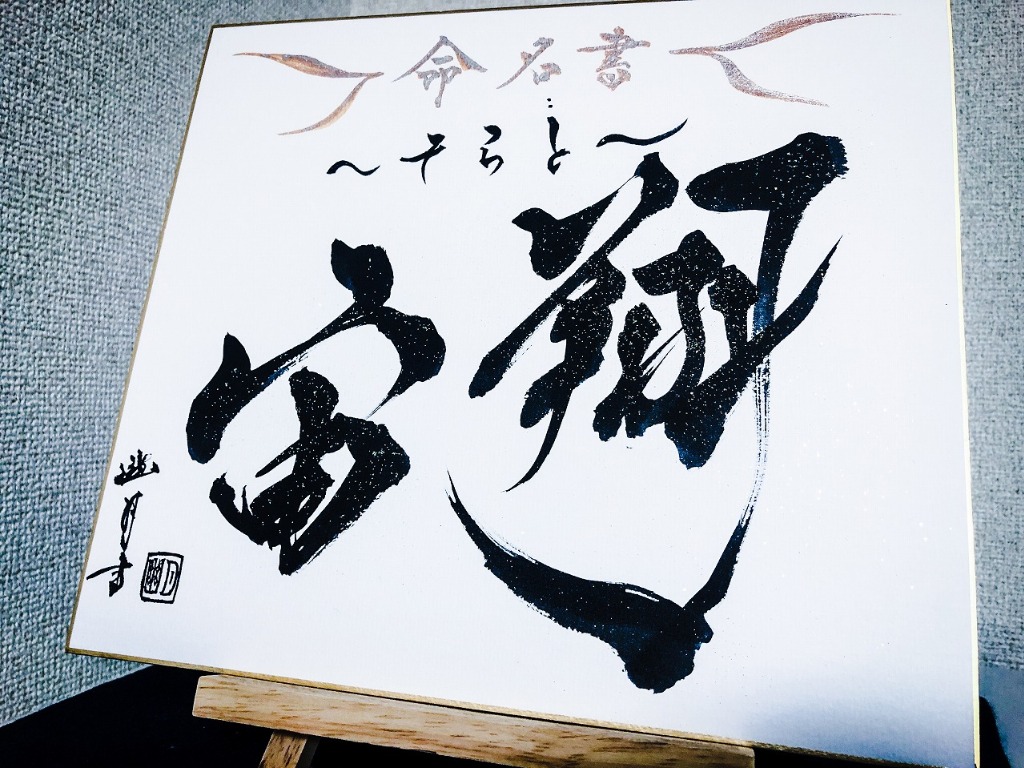 命名書
～そらと～
宙翔
幽月書
幽月